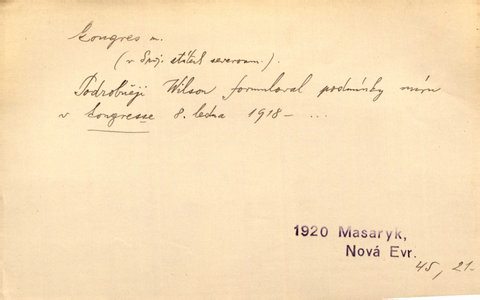 Kongres m.
(v Spoj. státech severoam.).
Podrobněji Wilson formuloval podmínky míru
v kongresse 8. ledna 1918 – ...
1920 Masaryk,
Nová Evr.
45, 21.